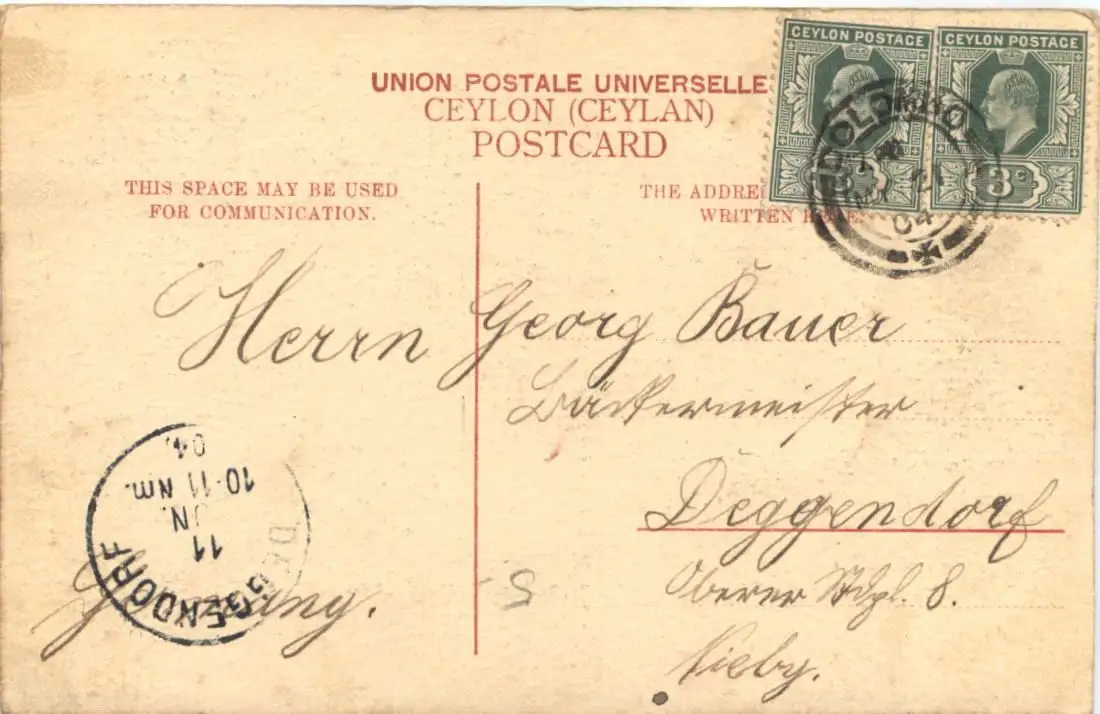 CEYLON POSTAGE CEYLON POSTAGE
3c
COLOMBO
04
UNION POSTALE UNIVERSELLE
CEYLON (CEYLAN)
POSTCARD
THIS SPACE MAY BE USED
FOR COMMUNICATION.
THE ADDRE
WRITTEN HERE
Herrn Georg Bauer
Bäckermeister
Deggendorf
Oberer Stdpl. 8.
Germany.
DEGGENDORF
11
JN.
10-11 Nm.
04